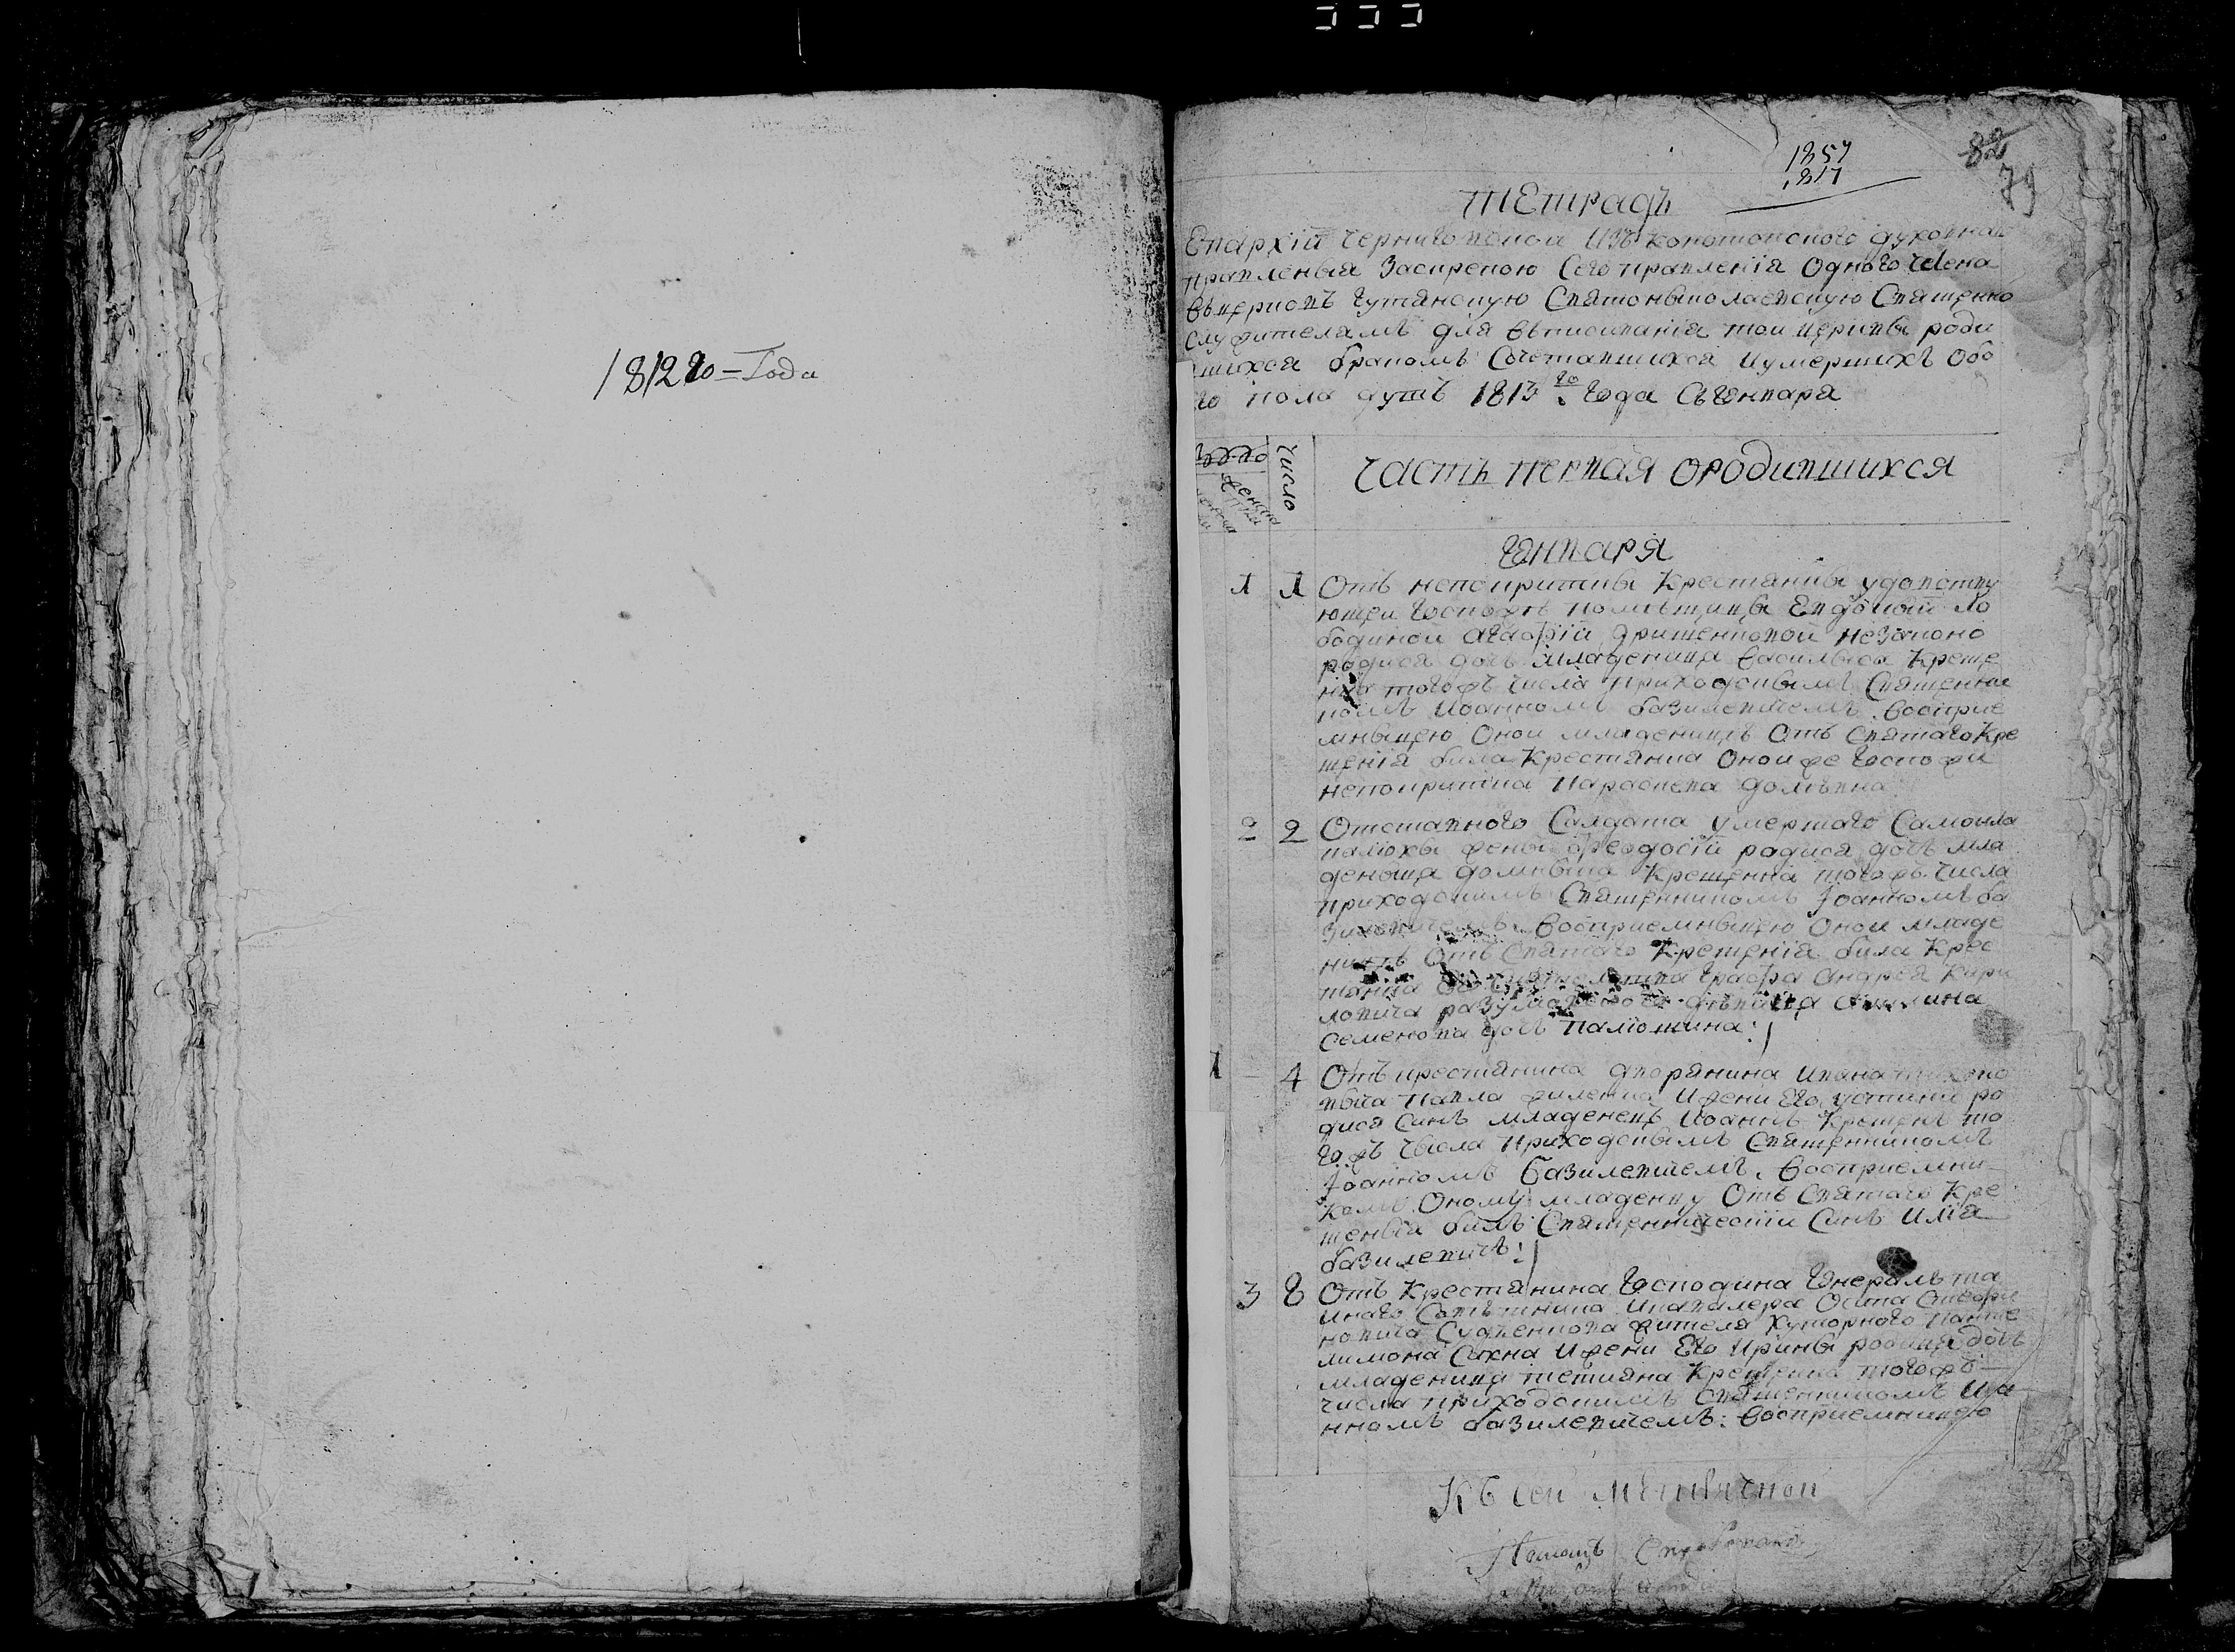 1812го = Года
1857
1817
82
79
тЕтрадь
Епархіи черниговской Изъ конотопского духовна
правленыя Заскрепою Сего правленія Одного члена
выцерковъ гутянскую Святоныколаевскую Священно
служителямъ для выписивания тои церквы роди
шихся бракомъ Сочетавшихся Иумершихъ обо
го пола душъ 1813 го Года Сгенваря
число
часть первая ородившихся
Генваря
1 1 Отъ непокритки Крестянкы удовству
ющеи Госпожѣ помѣщицы Евдокіи ло
бодиной Агафіи Грищенковой незаконо
родися дочь младеница Василыса Креще
нна тогожъ числа приходскымъ Священни
комъ Иоанномъ базилевичемъ. Восприе
мныцею Оной младеницѣ Отъ Святаго Кре
щенія была Крестянка Онои же Госпожи
непокритка Параскева
2 2 Отставного Салдата умершаго Самоила
палюхы жены Феодосіи радися дочь мла
деныца домныка Крещенна тогожъ числа
приходскимъ Священникомъ Іоанномъ ба
зилевичемъ. Восприемныцею Оной младе
ницѣ Отъ Святаго Крещенія была Крес
тянка Графа Андрея Кири
ловича разумовского дѣвица
Семенова дочь палюшина:
1 4 Отъ крестянина дворянина Ивана
выча Павла Ижени Его устини ро
дися Синъ младенецъ Иоаннъ Крещенъ то
гожъ числа приходскымъ Священникомъ
Іоанномъ базилевичемъ. Восприемни
комъ Оному младенцу Отъ Святаго Кре
щеныя былъ Священническіи Синъ Илія
базилевичъ:
3 8 Отъ Крестянина Господина Генералъ та
иного Совѣтника Икавалера Осипа Стефа
новича Судіенкова жителя хуторного панте
лимона Сахна Ижени Его Ирины родися дочь
младеница тетияна Крещенна тогожъ
числа приходскимъ Священникомъ Иоа
нномъ базилевичемъ: восприемницею
Къ сей метрической